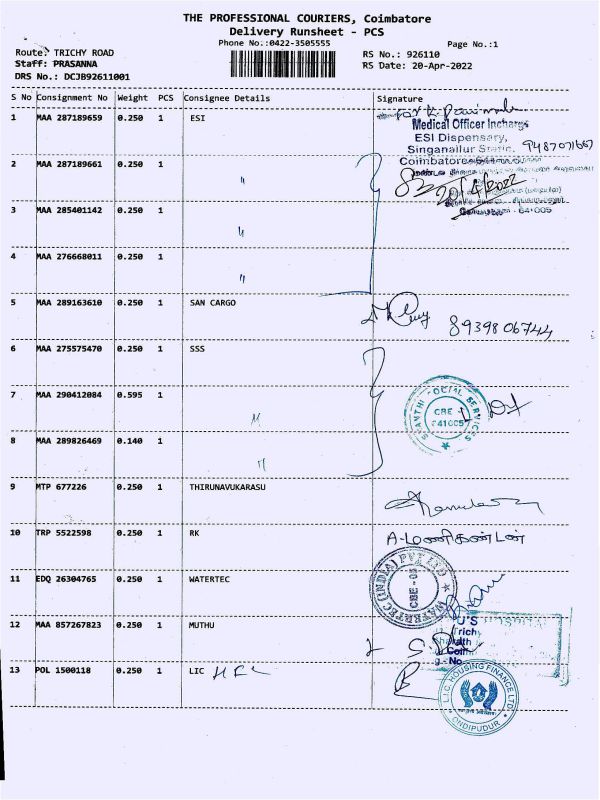 THE PROFESSIONAL COURIERS, Coimbatore
Delivery Runsheet - PCS
Phone No.:0422-3505555
Page No.:1
Route: TRICHY ROAD
RS No.: 926110
Staff: PRASANNA
RS Date: 20-Apr-2022
DRS No.: DCJB92611001
S No Consignment No Weight PCS Consignee Details Signature
1 MAA 287189659 0.250 1 ESI
Medical Officer Incharge
ESI Dispensary,
Singanallur
9487071667
Coimbatore
2 MAA 287189661 0.250 1 "
20/4/2022
3 MAA 285401142 0.250 1 "
641005
4 MAA 276668011 0.250 1 "
5 MAA 289163610 0.250 1 SAN CARGO
8939806744
6 MAA 275575470 0.250 1 SSS
7 MAA 290412084 0.595 1 "
SHANTHI SOCIAL SERVICES
CBE
641005
8 MAA 289826469 0.140 1 "
9 MTP 677226 0.250 1 THIRUNAVUKARASU
10 TRP 5522598 0.250 1 RK
A-மணிகண்டன்
11 EDQ 26304765 0.250 1 WATERTEC
WATERTEC (INDIA) PVT LTD
CBE - 05
12 MAA 857267823 0.250 1 MUTHU
U'S
Trich
13 POL 1500118 0.250 1 LIC HFL
L.I.C. HOUSING FINANCE LTD.
ONDIPUDUR